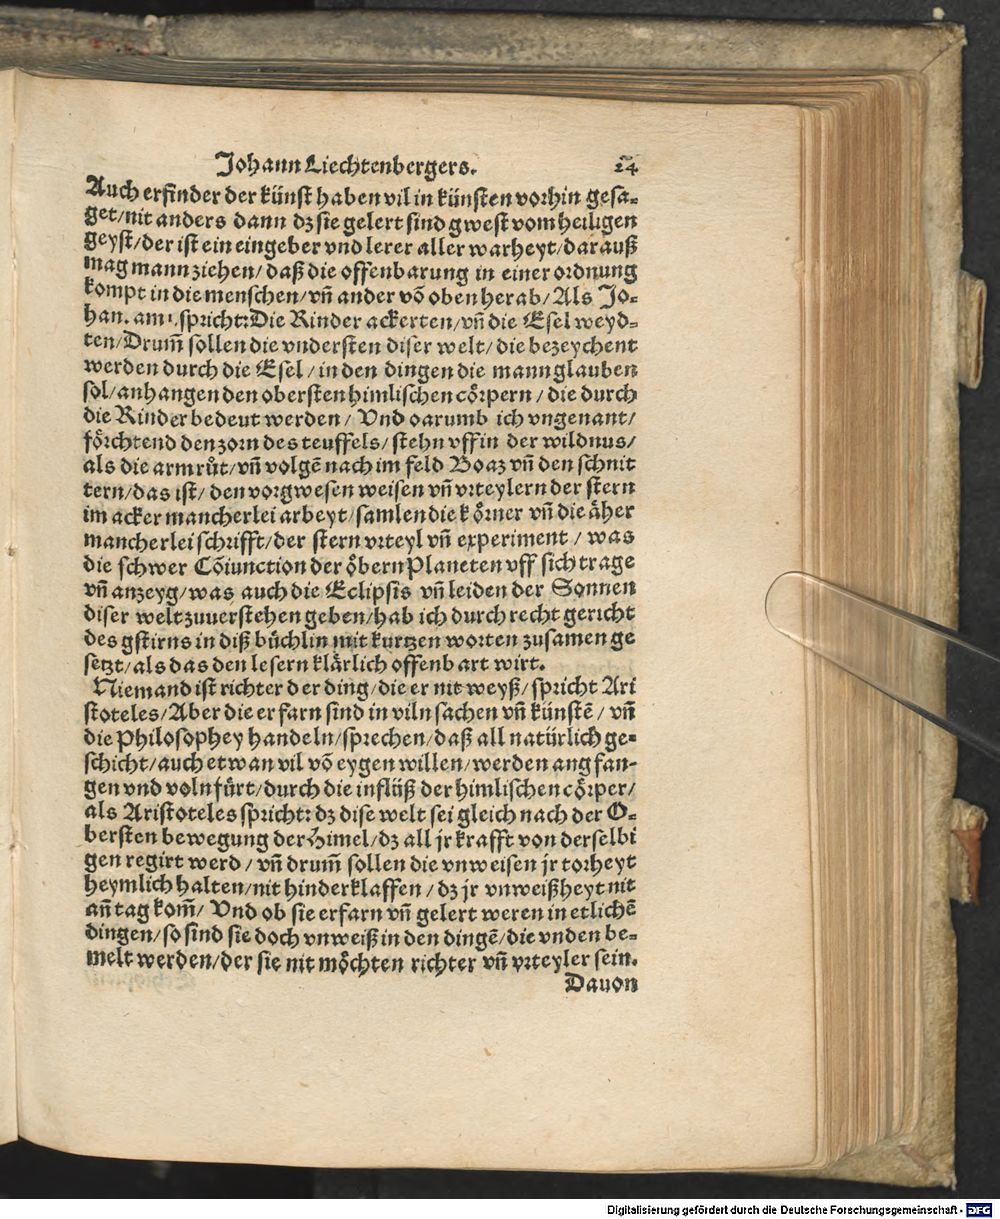 Johann Liechtenbergers. 24
Auch erfinder der künst haben vil in künsten vorhin gesa-
get/nit anders dann dz sie gelert sind gwest vom heiligen
geyst/der ist ein eingeber vnd lerer aller warheyt/darauß
mag mann ziehen/daß die offenbarung in einer ordnung
kompt in die menschen/vñ ander võ oben herab/Als Jo-
han. am 1. spricht: Die Rinder ackerten/vñ die Esel weyd-
ten/Drum̃ sollen die vndersten diser welt/die bezeychent
werden durch die Esel/in den dingen die mann glauben
sol/anhangen den obersten himlischen cörpern/die durch
die Rinder bedeut werden/Vnd darumb ich vngenant/
förchtend den zorn des teuffels/stehn vff in der wildnus/
als die arm růt/vñ volgẽ nach im feld Boaz vñ den schnit
tern/das ist/den vorgwesen weisen vñ vrteylern der stern
im acker mancherlei arbeyt/samlen die körner vñ die äher
mancherlei schrifft/der stern vrteyl vñ experiment/was
die schwer Cõiunction der öbern Planeten vff sich trage
vñ anzeyg/was auch die Eclipsis vñ leiden der Sonnen
diser welt zuuerstehen geben/hab ich durch recht gericht
des gstirns in diß büchlin mit kurtzen worten zusamen ge
setzt/als das den lesern klärlich offenbart wirt.
Niemand ist richter der ding/die er nit weyß/spricht Ari
stoteles/Aber die erfarn sind in viln sachen vñ künstẽ/vñ
die Philosophey handeln/sprechen/daß all natürlich ge-
schicht/auch etwan vil võ eygen willen/werden angfan-
gen vnd volnfürt/durch die inflüß der himlischen cörper/
als Aristoteles spricht: dz dise welt sei gleich nach der O-
bersten bewegung der Himel/dz all jr krafft von derselbi
gen regirt werd/vñ drum̃ sollen die vnweisen jr torheyt
heymlich halten/nit hinderklaffen/dz jr vnweißheyt nit
an̄ tag kom̃/Vnd ob sie erfarn vñ gelert weren in etlichẽ
dingen/so sind sie doch vnweiß in den dingẽ/die vnden be-
melt werden/der sie nit möchten richter vñ vrteyler sein.
Dauon
Digitalisierung gefördert durch die Deutsche Forschungsgemeinschaft - DFG